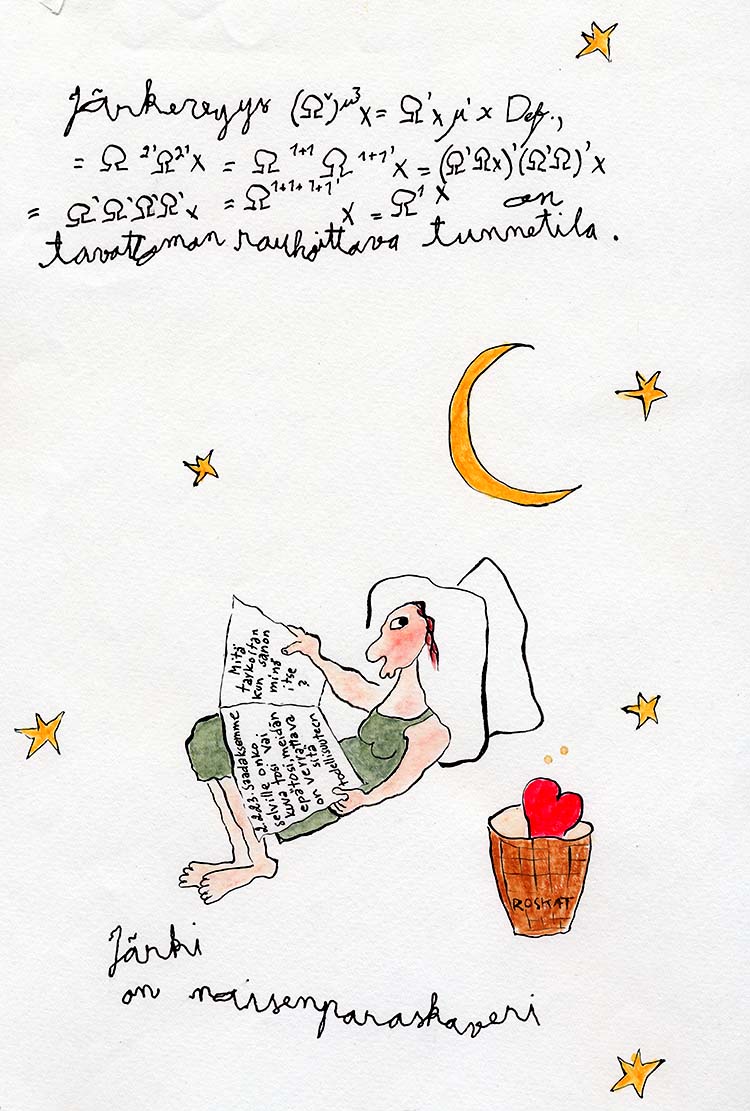 Järkeregyys (Ωᵛ)μ³x = Ω'x μ'x Def.,
= Ω ²'Ω²'x = Ω ¹⁺¹Ω ¹⁺¹'x = (Ω'Ωx)'(Ω'Ω)'x
= Ω'Ω'Ω'Ω'x = Ω¹⁺¹⁺¹⁺¹'x = Ω¹x on
tavattoman rauhoittava tunnetila.
Mitä
tarkoitan
kun sanon
minä
itse
?
2.223. Saadaksemme
selville onko
kuva tosi vai
epätosi, meidän
on verrattava
sitä
todellisuuteen
ROSKAT
Järki
on naisenparaskaveri